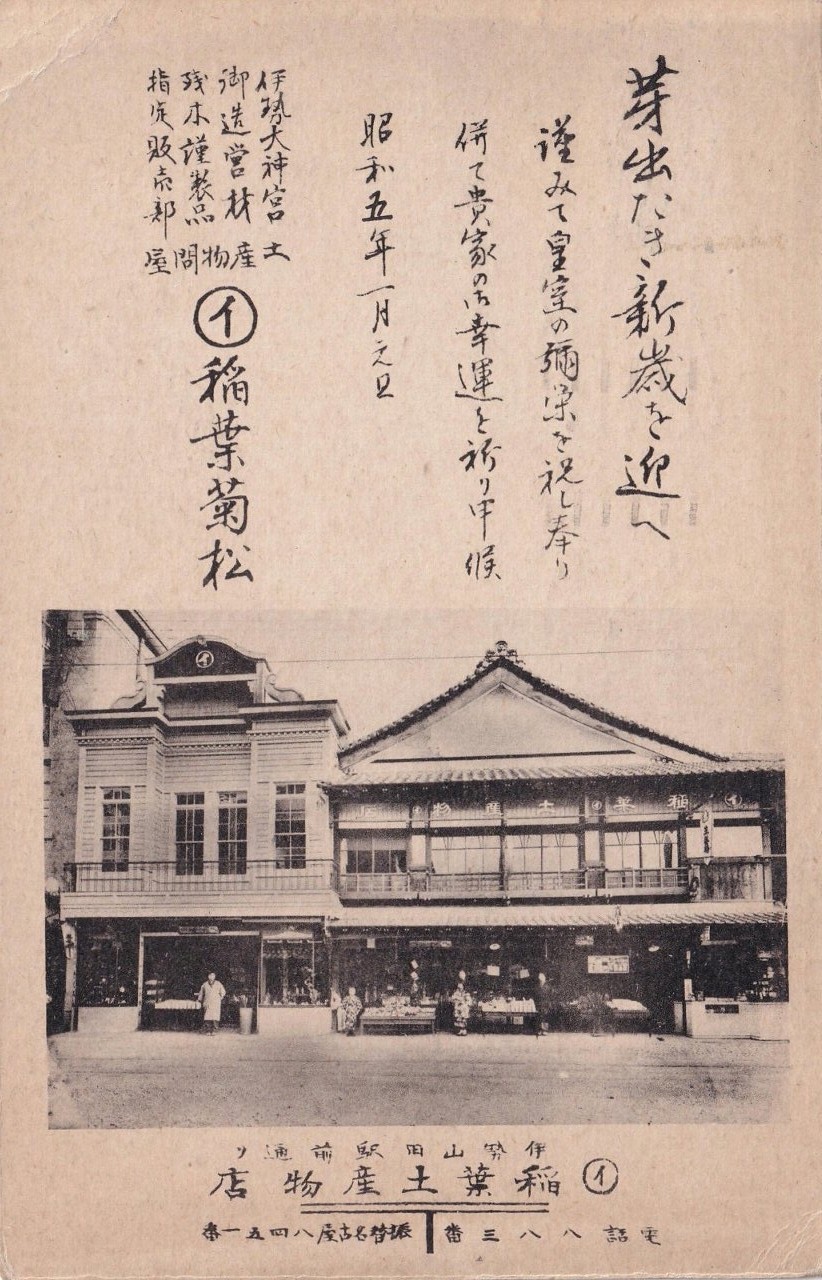 芽出たき新歳を迎へ
謹みて皇室の彌栄を祝し奉り
併て貴家の御幸運を祈り申候
昭和五年一月元旦
伊勢大神宮
御造営材
残木謹製品
指定販売部
土産物問屋
イ 稲葉菊松
イ 稲葉土産物店
伊勢山田駅前通り
イ 稲葉土産物店
電話八八三番
振替名古屋八四五一番